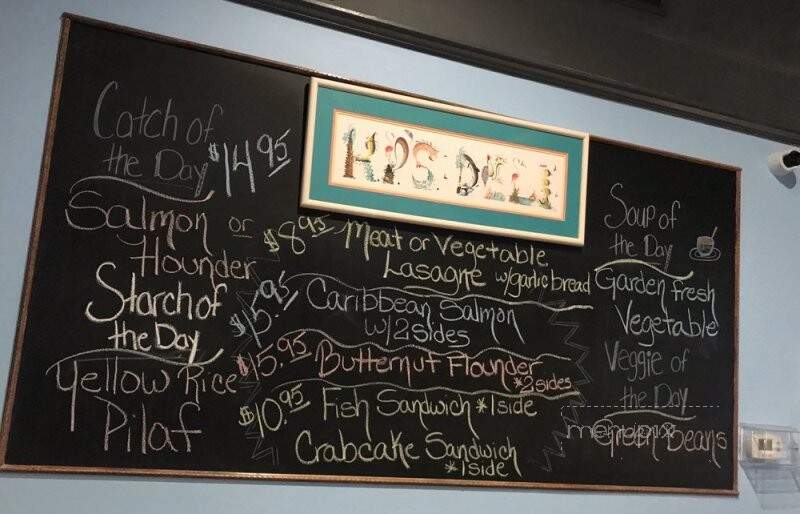 Catch of
the Day $14.95
Salmon or
Flounder
Starch of
the Day
Yellow Rice
Pilaf
K.P.'S-DELI
$8.95 Meat or Vegetable
Lasagne w/garlic bread
Caribbean Salmon
w/2sides
$15.95 Butternut Flounder
*2sides
$10.95 Fish Sandwich *1side
Crabcake Sandwich
*1side
Soup of
the Day
Garden Fresh
Vegetable
Veggie of
the Day
Green Beans
menupix